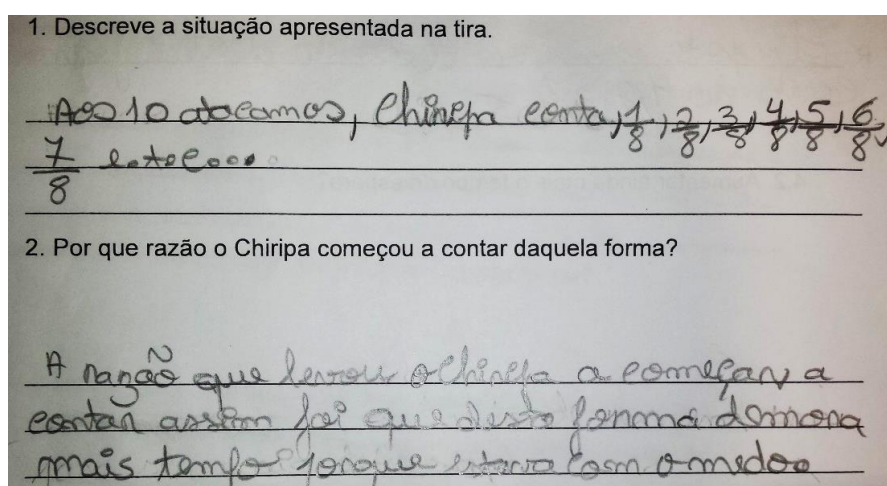 1. Descreve a situação apresentada na tira.
Aos 10 atacamos, Chiripa conta, 1/8, 2/8, 3/8, 4/8, 5/8, 6/8,
7/8 e.t.c...
2. Por que razão o Chiripa começou a contar daquela forma?
A razão que levou o Chiripa a começar a
contar assim foi que desta forma demora
mais tempo porque estava com o medo.